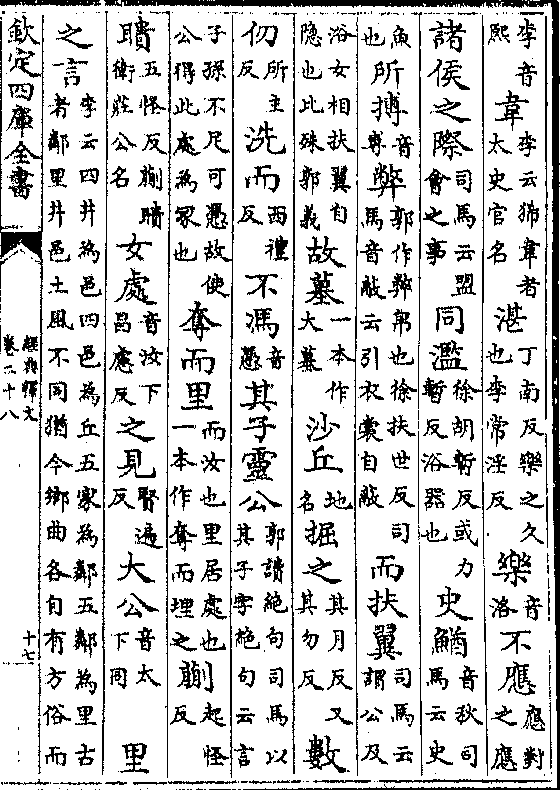 李音熙韋李云狶韋者太史官名湛丁南反樂之久也李常淫反樂音洛不應應對之應
諸侯之際司馬云盟會之事同濫徐胡暫反或力暫反浴器也史鰌音秋司馬云史
魚也所搏音博弊郭作斃帛也徐扶世反司馬音蔽云引衣裳自蔽而扶翼司馬云謂公及
浴女相扶翼自隐也此殊郭義故墓一本作大墓沙丘地名掘之其月反又其勿反數
仞所主反洗而西禮反不馮音憑其子靈公郭讀絕句司馬以其子字絕句云言
子孫不足可憑故使公得此處為冢也奪而里而汝也里居處也一本作奪而埋之蒯起怪反
聵五怪反蒯聵衛莊公名女處音汝下昌慮反之見賢遍反大公音太下同里
之言李云四井為邑四邑為丘五家為鄰五鄰為里古者鄰里井邑土風不同猶今鄉曲各自有方俗而
欽定四庫全書
經典釋文
卷二十八
十七